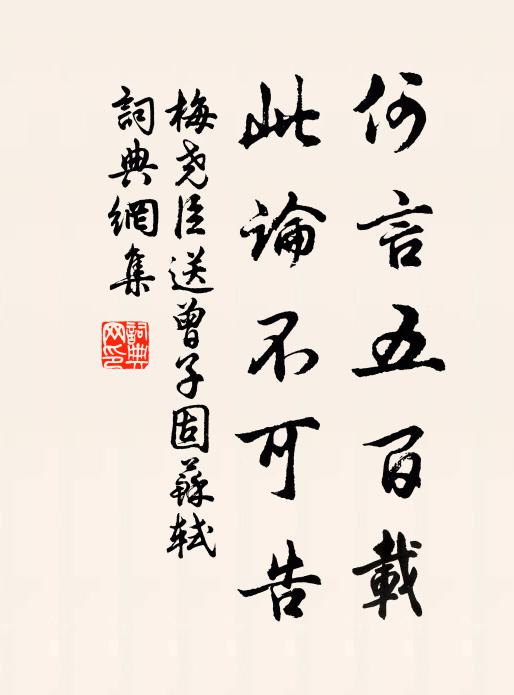 何言五百載
此論不可告
梅堯臣送曾子固蘇軾
詞典網集
詞典网印